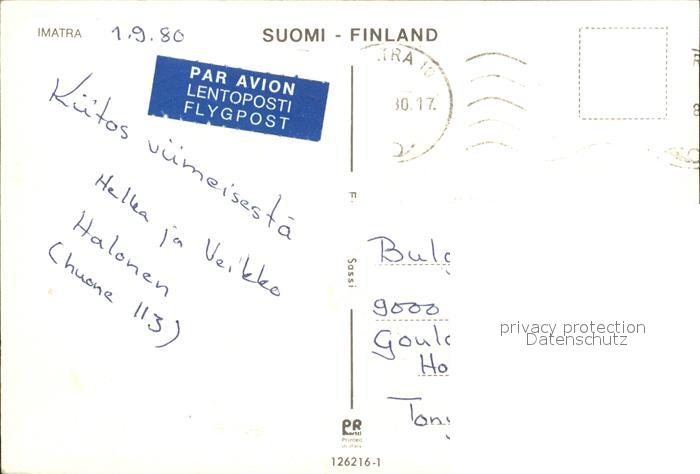 IMATRA 1.9.80 SUOMI - FINLAND
PAR AVION
LENTOPOSTI
FLYGPOST
Kiitos viimeisestä
Helka ja Veikko
Halonen
(huone 113)
TRA 10
80.17.
Sassi
Bulg
9000
Ho
Tony
privacy protection
Datenschutz
PR
Printed
in Italy
126216-1